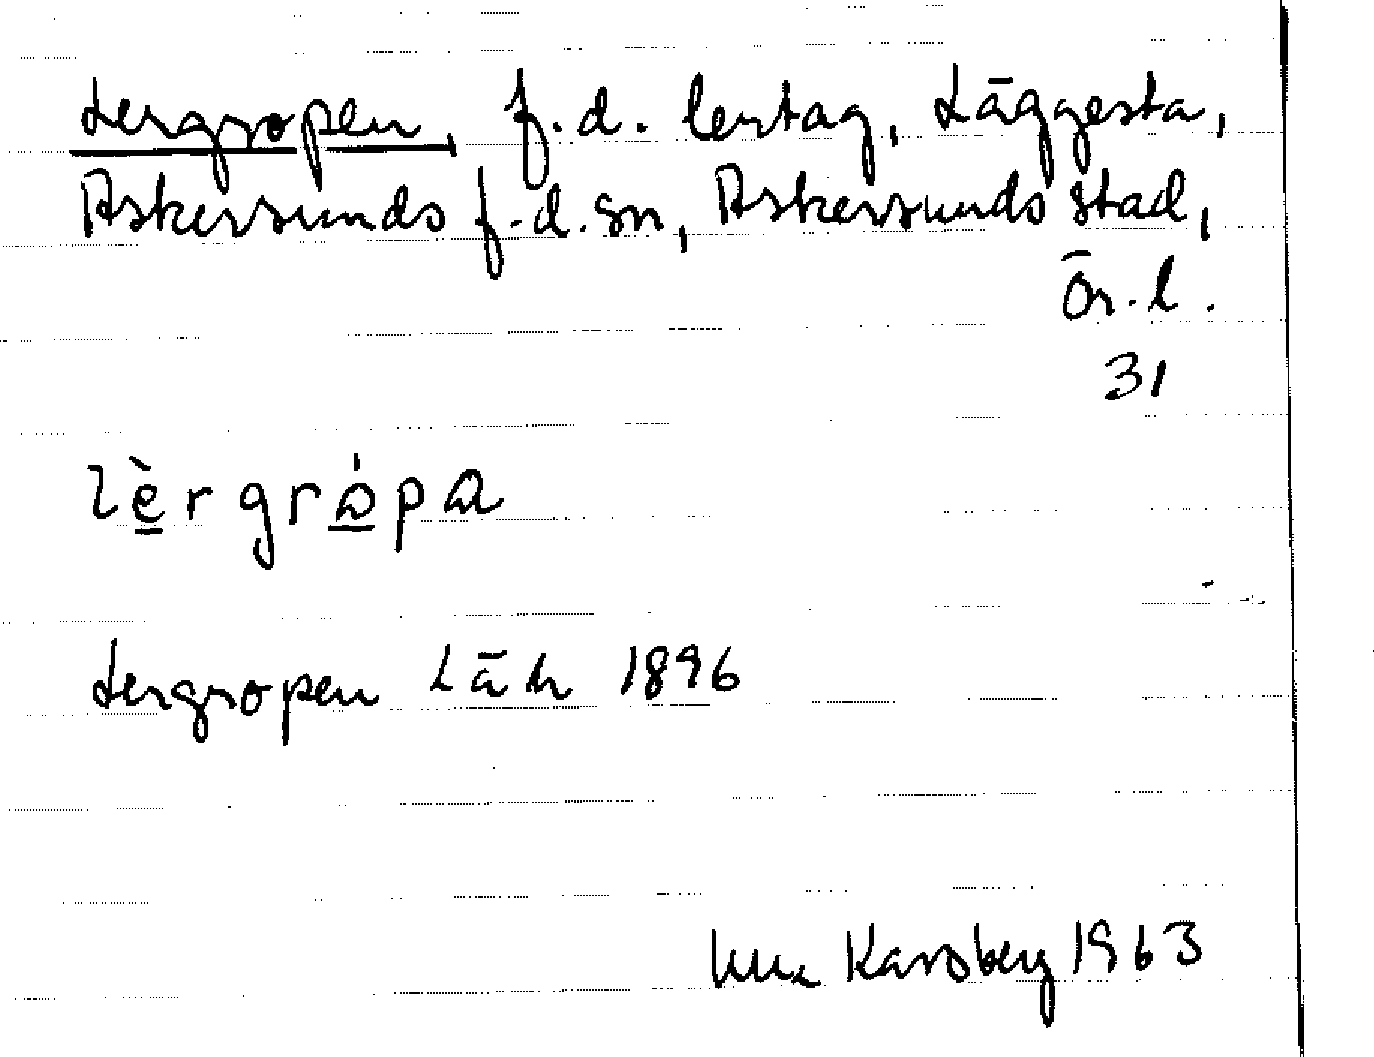 Lergropen, f.d. lertag, Läggesta,
Askersunds f.d. sn, Askersunds stad,
Ör. l.
31
lèrgrópa
Lergropen Läh 1896
Karsberg 1963